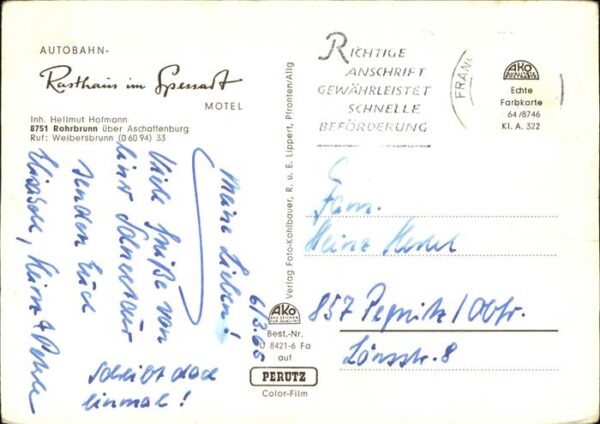 AUTOBAHN-
Rasthaus im Spessart
MOTEL
Inh. Hellmut Hofmann
8751 Rohrbrunn über Aschaffenburg
Ruf: Weibersbrunn (0 60 94) 33
Meine Lieben!
Viele Grüße von
einer
senden Euch
Elisabeth, Heinz +
Schreibt doch
einmal!
6/3.66
Verlag Foto-Kohlbauer, R. u. E. Lippert, Pfronten/Allg
AKO
DAS ZEICHEN
FÜR QUALITÄT
Best.-Nr.
U 8421-6 Fa
auf
PERUTZ
Color-Film
RICHTIGE
ANSCHRIFT
GEWÄHRLEISTET
SCHNELLE
BEFÖRDERUNG
FRANK
AKO
Echte
Farbkarte
64/8746
Kl. A. 322
Fam.
Heinz
857 Pegnitz/Obfr.
Lönsstr. 8